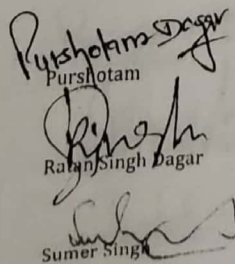 Purshotam Dagar
Purshotam
Ratan Singh Dagar
Sumer Singh